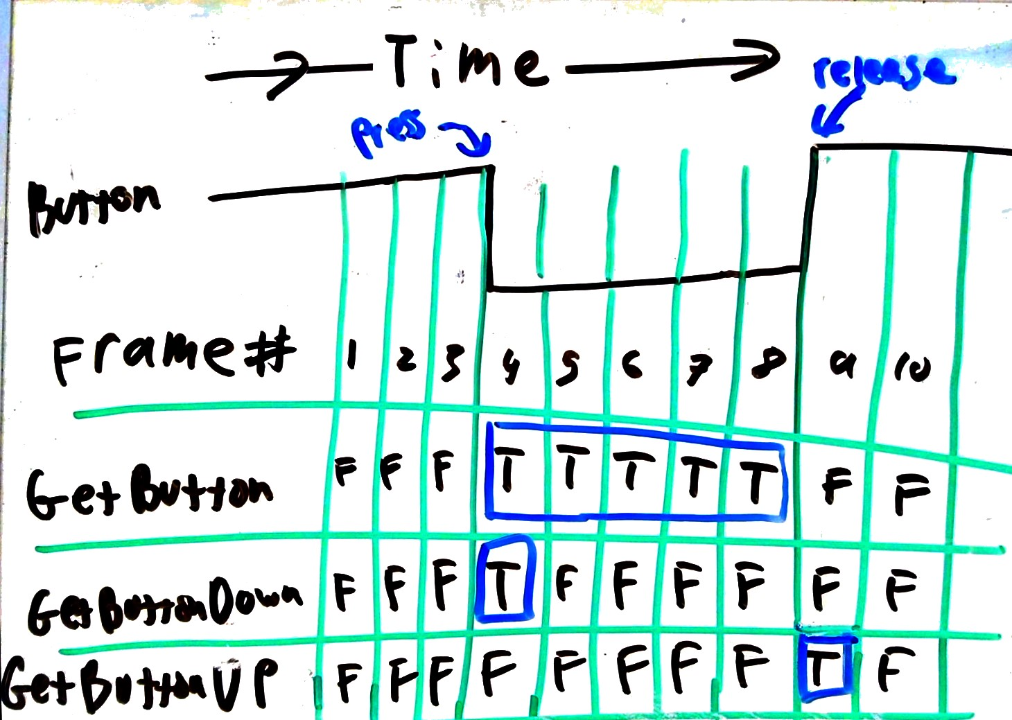 Time
release
press
Button
Frame# 1 2 3 4 5 6 7 8 9 10
GetButton F F F T T T T T F F
GetButtonDown F F F T F F F F F F
GetButtonUP F F F F F F F F T F